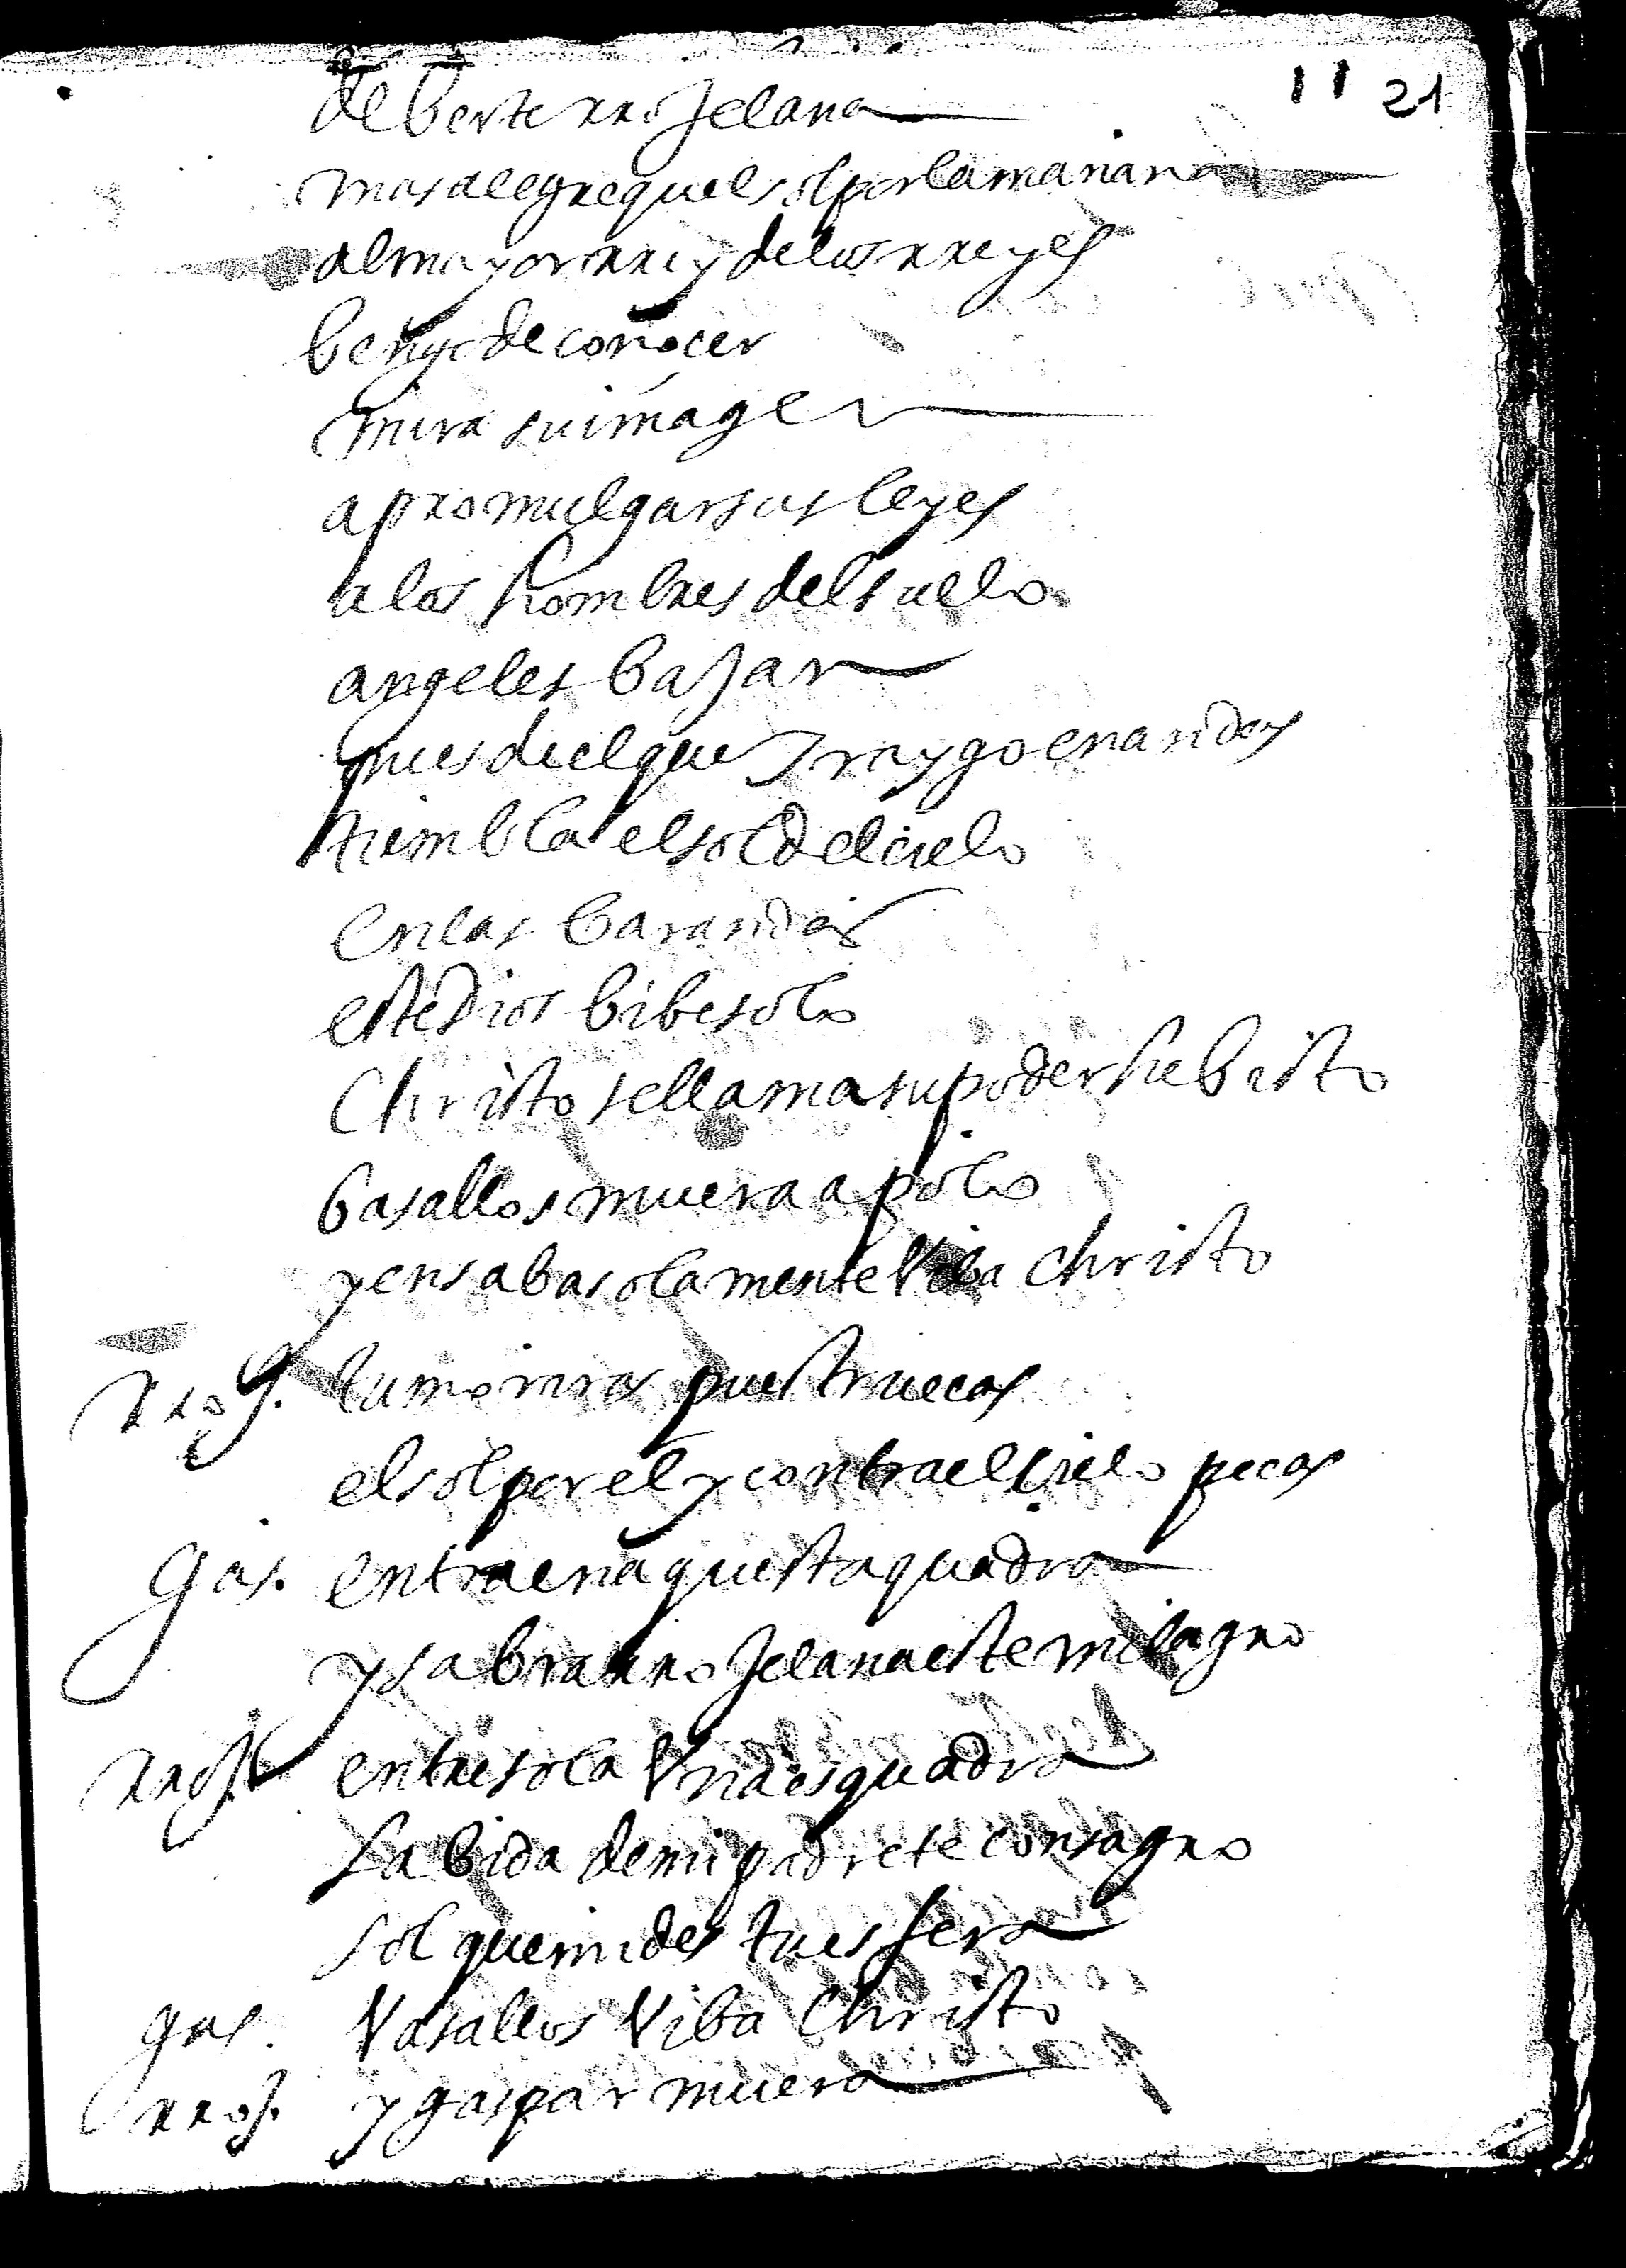 11 21
de berte rrojelana
mas alegre quel sol por la mañana
al mayor rrey de los rreyes
bengo de conocer
mira su imagen
a promulgar sus leyes
a los hombres del suelo
angeles bajar
pues de el que traygo en andas
tiembla el sol del cielo
en las barandas
este Dios bibe solo
Christo se llama su poder he bisto
basallos muera apolo
y en sabas solamente Viba Christo
rroj. tu moriras pues truecas
el sol por el y contra el cielo pecas
Gas. entra en aquesta quadra
y sabra rrojelana este milagro
rroj. entre sola Vna esquadra
la bida de mi padre te consagro
sol que mides tu esfera
gas. Vasallos Viba Christo
rroj. y gaspar muera